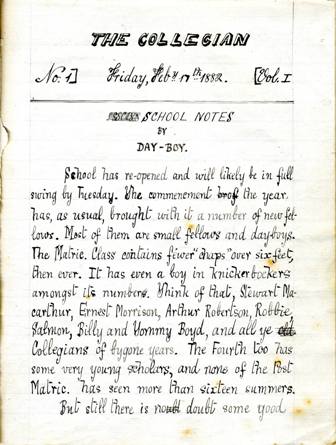 THE COLLEGIAN
No. 1] Friday, Feby 17th 1882. [Vol. I
SCHOOL NOTES
BY
DAY-BOY.
School has re-opened and will likely be in full
swing by Tuesday. The commenement of the year,
has, as usual, brought with it a number of new fel-
lows. Most of them are small fellows and dayboys.
The Matric. Class contains fewer "chaps" over six feet,
then ever. It has even a boy in knickerbockers
amongst its numbers. Think of that, Stewart Ma-
carthur, Ernest Morrison, Arthur Robertson, Robbie
Salmon, Billy and Tommy Boyd, and all ye old
Collegians of bygone years. The Fourth too has
some very young scholars, and none of the Post
Matric. has seen more than sixteen summers.
But still there is no doubt some good